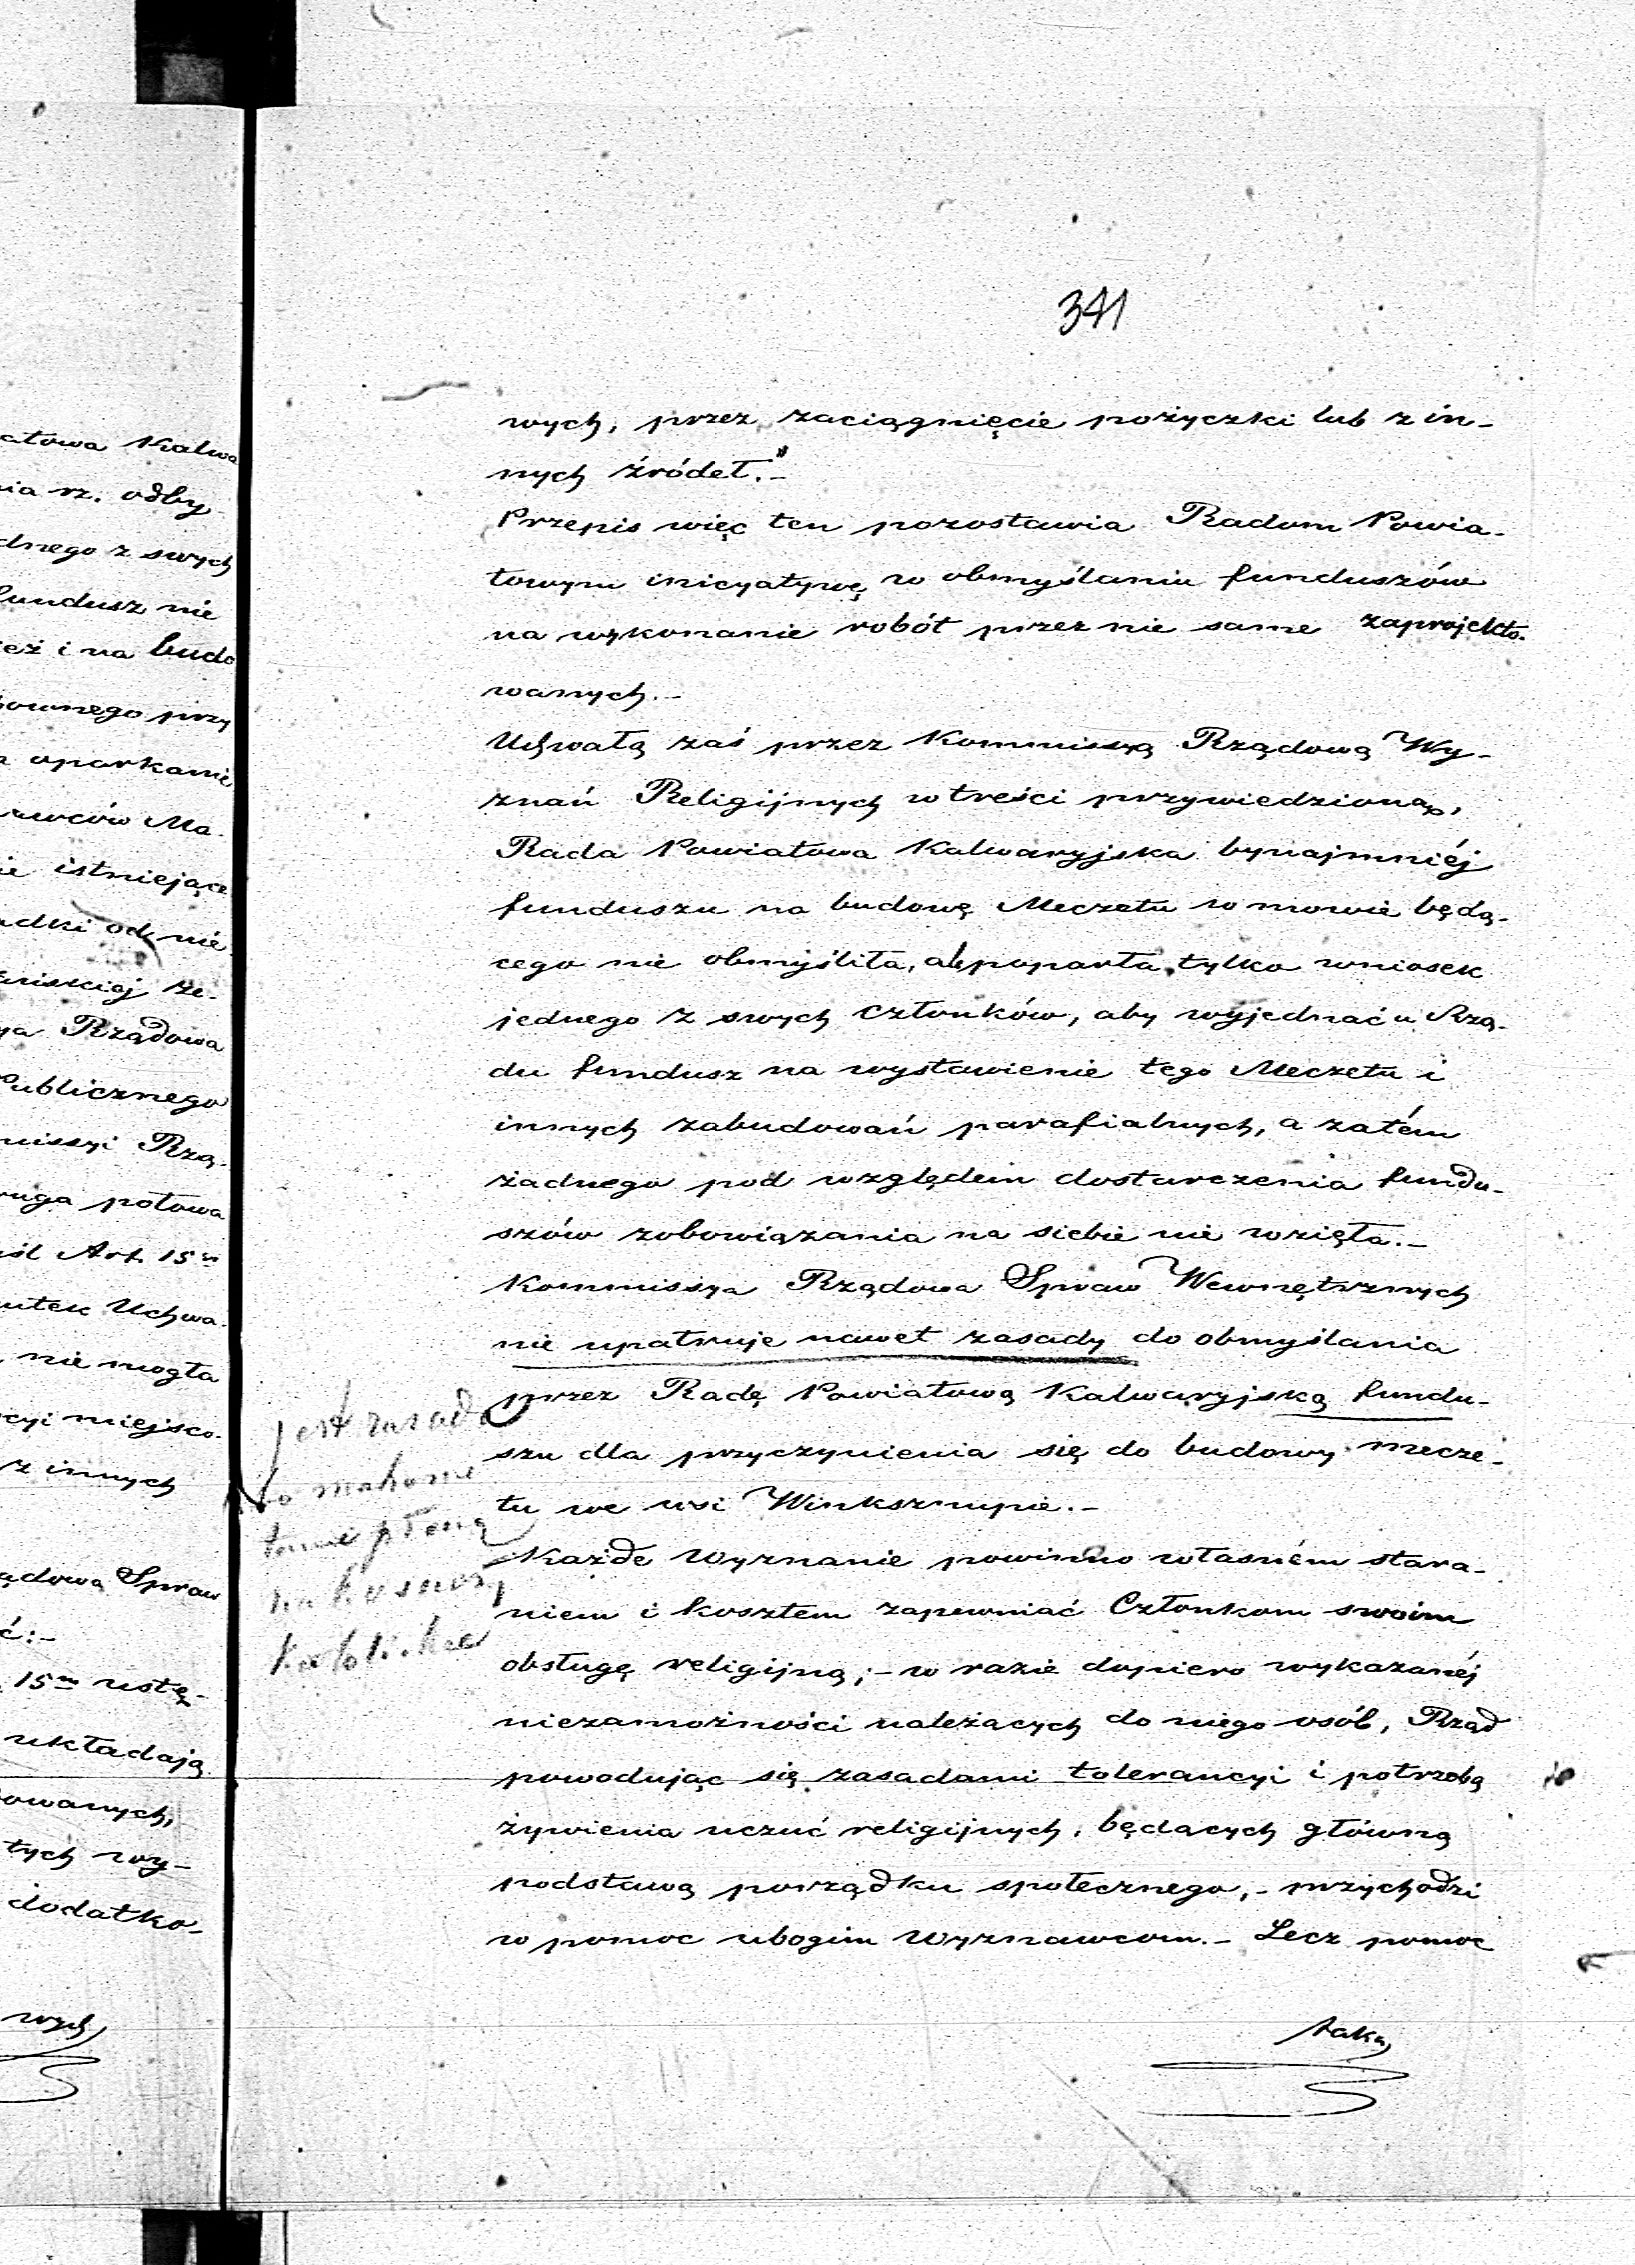 341
wych, przez zaciągnięcie pożyczki lub z in-
nych źródeł."-
Przepis więc ten pozostawia Radom Powia-
towym inicyatywę w obmyślaniu funduszów
na wykonanie robót przez nie same zaprojekto-
wanych.-
Uchwałą zaś przez Kommissyą Rządową Wy-
znań Religijnych w treści przywiedzioną,
Rada Powiatowa Kalwaryjska bynajmniéj
funduszu na budowę Meczetu w mowie będą-
cego nie obmyśliła, ale poparła tylko wniosek
jednego z swych Członków, aby wyjednać u Rzą-
du fundusz na wystawienie tego Meczetu i
innych zabudowań parafialnych, a zatém
żadnego pod względem dostarczenia fundu-
szów zobowiązania na siebie nie wzięła.-
Kommissya Rządowa Spraw Wewnętrznych
nie upatruje nawet zasady do obmyślania
przez Radę Powiatową Kalwaryjską fundu-
szu dla przyczynienia się do budowy mecze-
tu we wsi Winksznupie.-
Każde Wyznanie powinno własném stara-
niem i kosztem zapewniać Członkom swoim
obsługę religijną;- w razie dopiero wykazanéj
niezamożności należacych do niego osób, Rząd
powodując się zasadami tolerancyi i potrzebą
żywienia uczuć religijnych, będacych główną
podstawą porządku społecznego,- przychodzi
w pomoc ubogim Wyznawcom.- Lecz pomoc
taka
Jest zasada
bo mahome
tanie płacą
na kościoły
katolickie
atowa Kalwa
nia rz. odby-
dnego z swych
fundusz nie
ież i na budo
ownego przy
oparkanie
awców Ma-
ie istniejące
adki od nie
ańskiej że-
ya Rządowa
Publicznego
missyi Rzą-
ruga połowa
śl Art. 15
utek Uchwa-
, nie mogła
cyi miejsco-
z innych
ądowa Spraw
ć:-
15 ustę-
układają
owanych,
tych wy-
dodatko-
wych